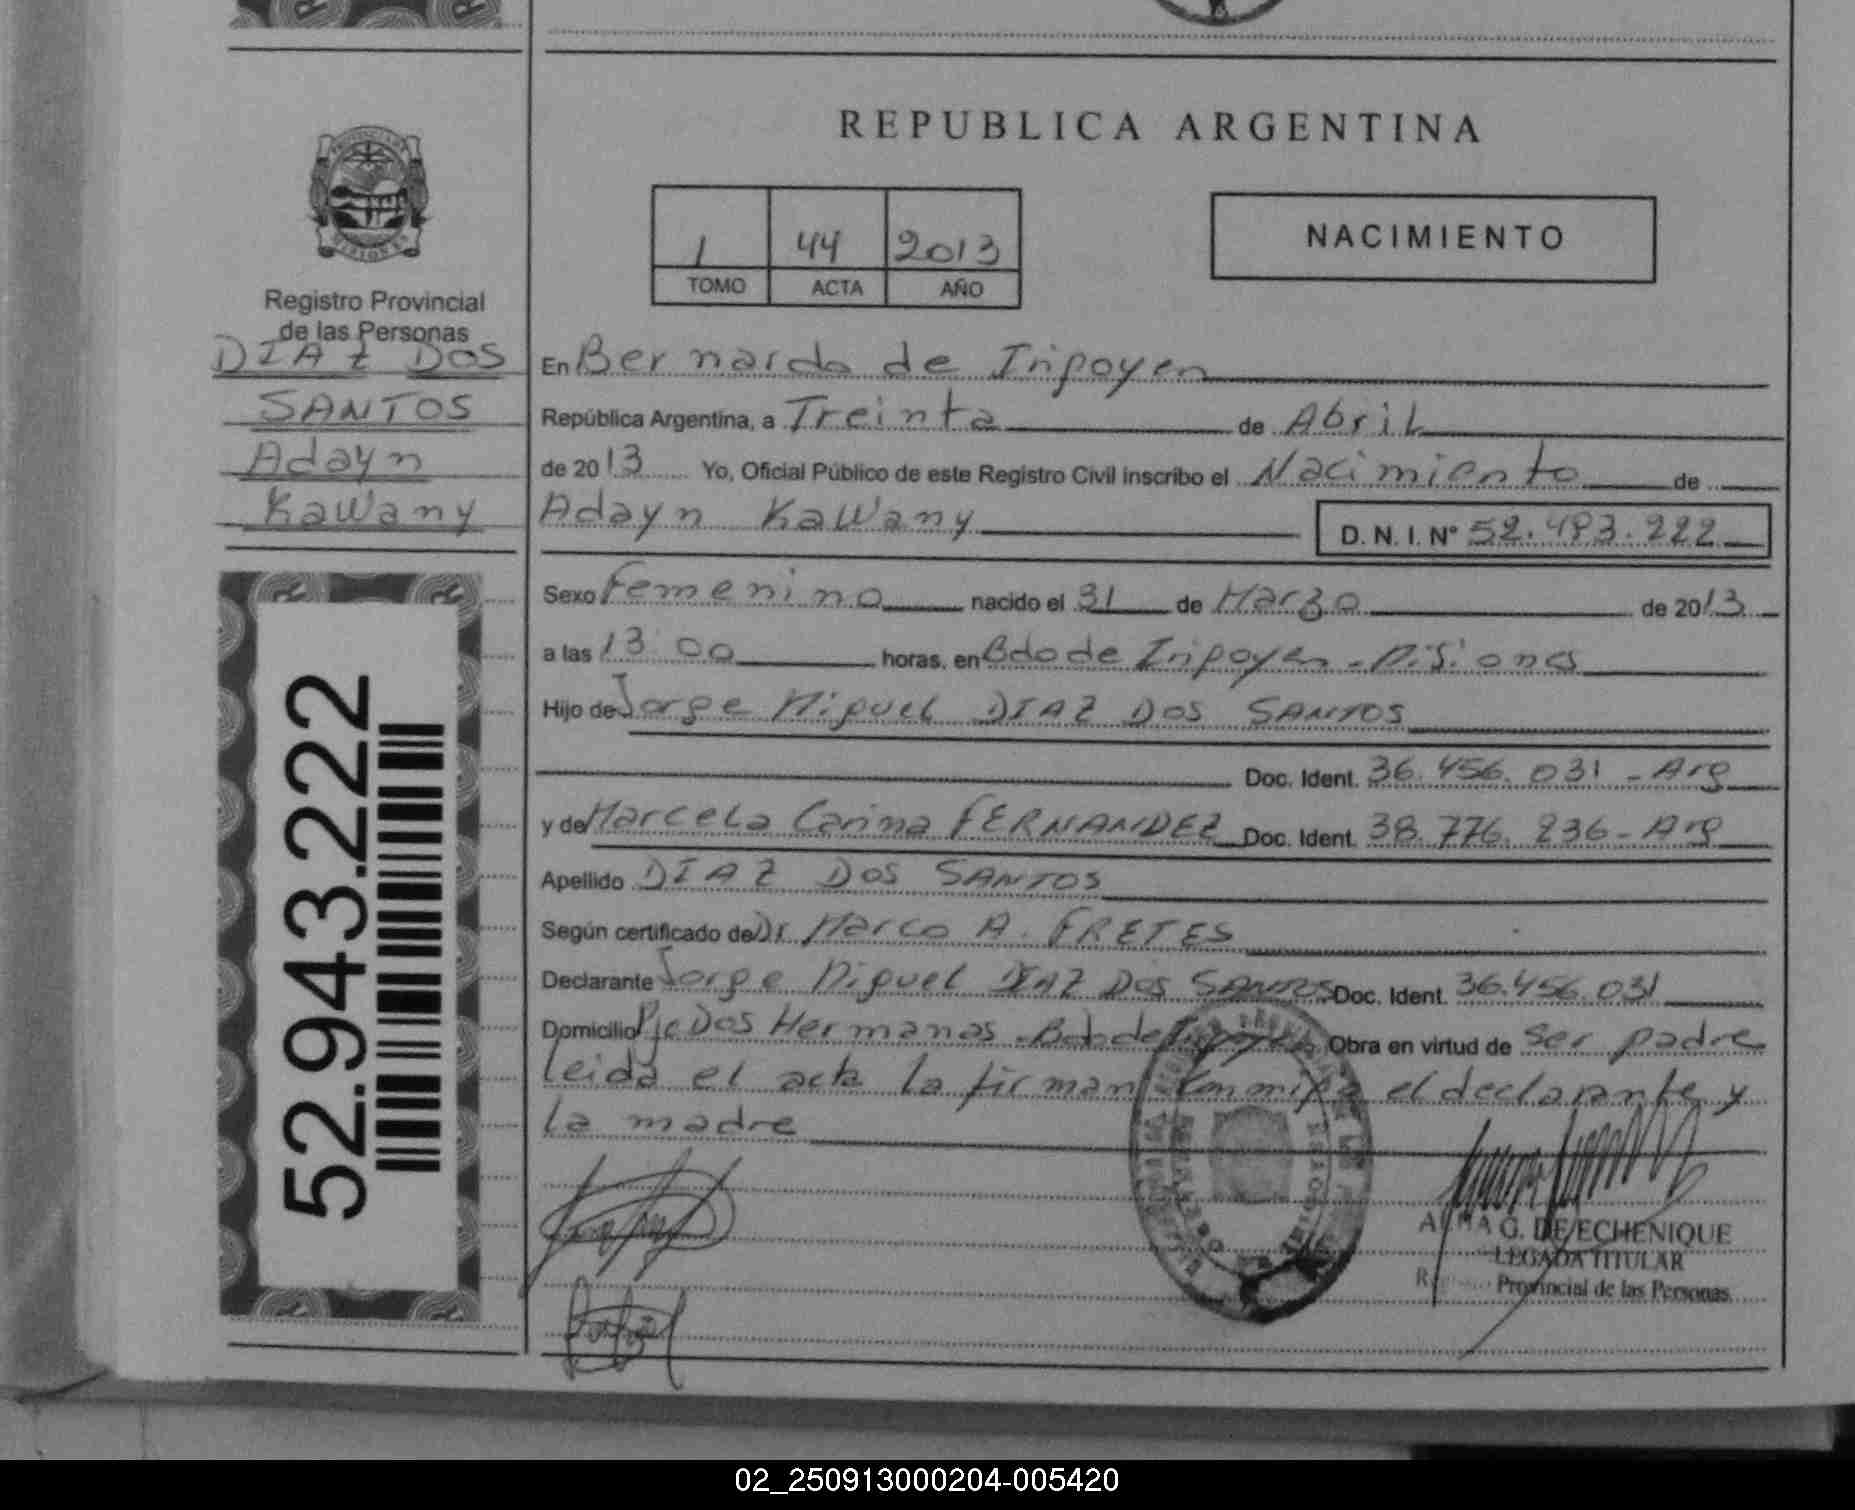 REPUBLICA ARGENTINA
1 44 2013
TOMO ACTA AÑO
NACIMIENTO
Registro Provincial
de las Personas
DIAZ DOS
SANTOS
Adayn
Kawany
52.943.222
En Bernardo de Irigoyen
República Argentina, a Treinta de Abril
de 2013 Yo, Oficial Público de este Registro Civil inscribo el Nacimiento de
Adayn Kawany D. N. I. N° 52.493.222
Sexo Femenino nacido el 31 de Marzo de 2013
a las 13:00 horas, en Bdo de Irigoyen - Misiones
Hijo de Jorge Miguel DIAZ DOS SANTOS
Doc. Ident. 36.456.031 - Arg
y de Marcela Carina FERNANDEZ Doc. Ident. 38.776.236 - Arg
Apellido DIAZ DOS SANTOS
Según certificado de Dr Marco A. FRETES
Declarante Jorge Miguel DIAZ DOS SANTOS Doc. Ident. 36.456.031
Domicilio Pje Dos Hermanas - Bdo de Irigoyen Obra en virtud de ser padre
leida el acta la firman conmigo el declarante y
la madre
ALMA G. DE ECHENIQUE
LEGADA TITULAR
Provincial de las Personas
02_250913000204-005420